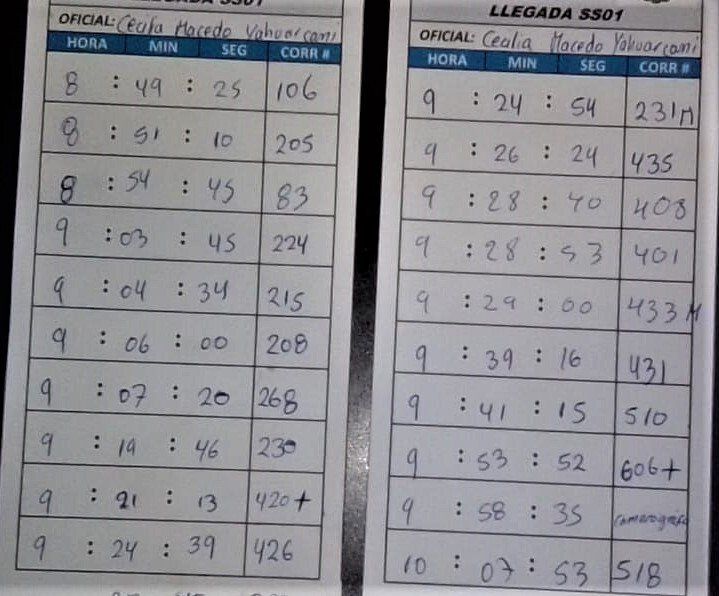 LLEGADA SS01
OFICIAL: Cecilia Macedo Yahuarcani
HORA MIN SEG CORR #
8 : 49 : 25 106
8 : 51 : 10 205
8 : 54 : 45 83
9 : 03 : 45 224
9 : 04 : 34 215
9 : 06 : 00 208
9 : 07 : 20 268
9 : 19 : 46 230
9 : 21 : 13 420+
9 : 24 : 39 426
LLEGADA SS01
OFICIAL: Cecilia Macedo Yahuarcani
HORA MIN SEG CORR #
9 : 24 : 54 231M
9 : 26 : 24 435
9 : 28 : 40 408
9 : 28 : 53 401
9 : 29 : 00 433M
9 : 39 : 16 431
9 : 41 : 15 510
9 : 53 : 52 606+
9 : 58 : 35 camarografo
10 : 07 : 53 518